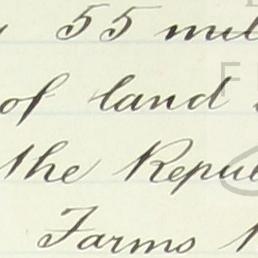 55 mil
of land
the Repu
Farms